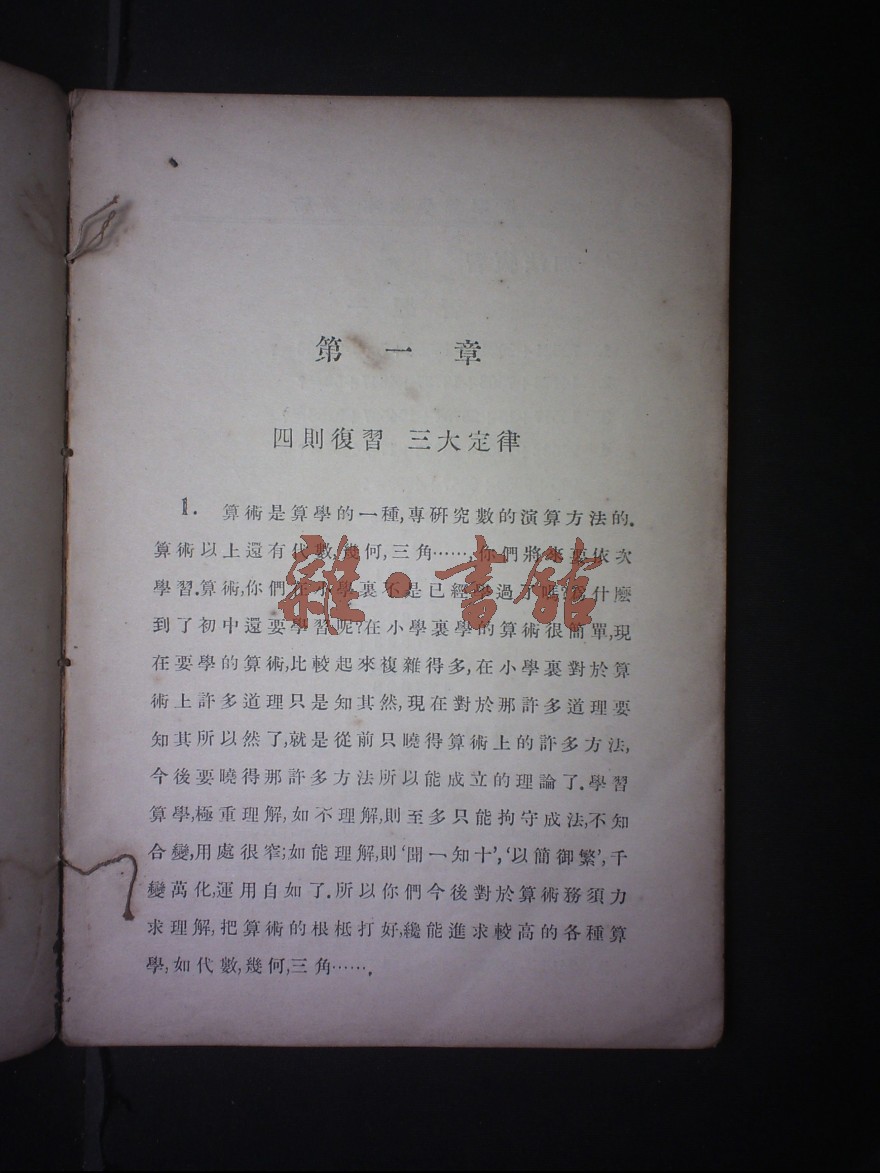 第一章
四則復習 三大定律
1. 算術是算學的一種,專研究數的演算方法的.
算術以上還有代數,幾何,三角……,你們將來要依次
學習.算術,你們在小學裏不是已經學過了嗎?爲什麼
到了初中還要學習呢?在小學裏學的算術很簡單,現
在要學的算術,比較起來複雜得多,在小學裏對於算
術上許多道理只是知其然,現在對於那許多道理要
知其所以然了,就是從前只曉得算術上的許多方法,
今後要曉得那許多方法所以能成立的理論了.學習
算學,極重理解,如不理解,則至多只能拘守成法,不知
合變,用處很窄;如能理解,則‘聞一知十’,‘以簡御繁’,千
變萬化,運用自如了.所以你們今後對於算術務須力
求理解,把算術的根柢打好,纔能進求較高的各種算
學,如代數,幾何,三角…….
雜·書館